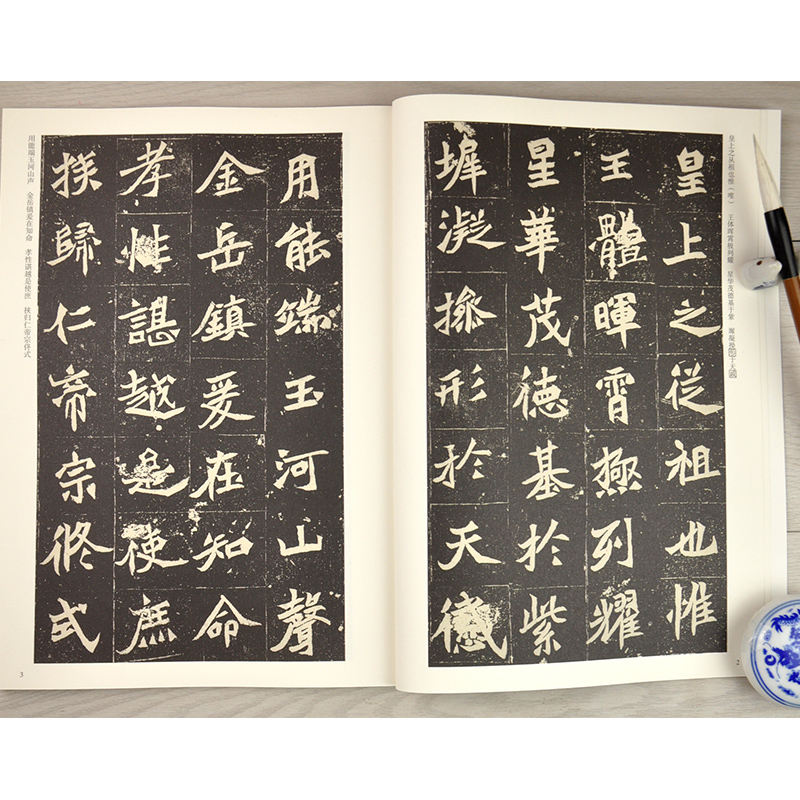 皇上之从祖也惟（唯） 王体晖霄极列耀 星华茂德基于紫 墀凝操形于天
皇上之從祖也惟
王體暉霄極列耀
星華茂德基於紫
墀凝操形於天儀
2
用能端玉河山聲
金岳鎮爰在知命
孝性諶越是使庶
族歸仁帝宗攸式
用能端玉河山声 金岳镇爰在知命 孝性谌越是使庶 族归仁帝宗攸式
3